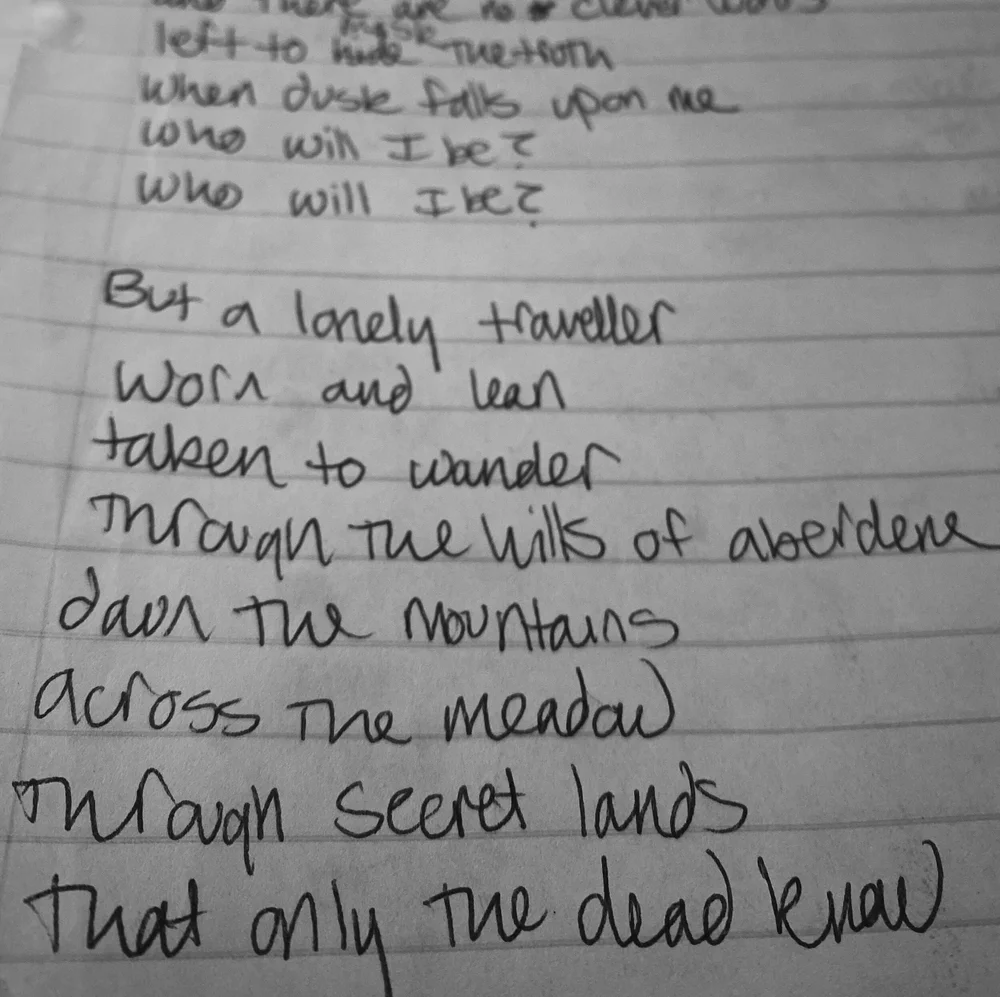 and there are no clever words
left to hide the troth
when dusk falls upon me
who will I be?
who will I be?
But a lonely traveller
Worn and lean
taken to wander
Through the hills of aberdene
down the mountains
across the meadow
Through secret lands
that only the dead know